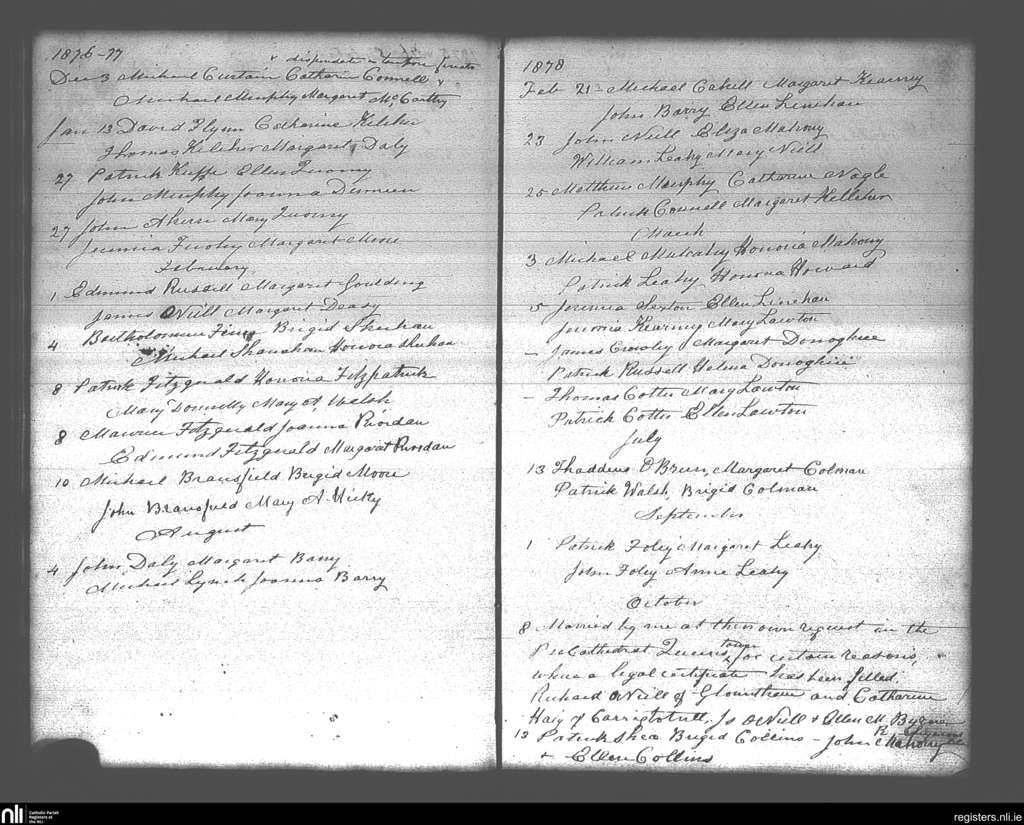 1876-77
+ dispensatio in tempore
Dec 3 Michael Curtain Catharin Connell +
Michael Murphy Margaret McCarthy
Jan 13 David Flynn Catherine Keleher
Thomas Keleher Margaret Daly
27 Patrick Keeffe Ellen Twomy
John Murphy Joanna
27 John Ahern Mary Twomy
Margaret
February
1 Edmund Russell Margaret Goulding
James O'Neill Margaret Deasy
4 Bartholomew Brigid Sheehan
Michael Shanahan Honora Sheehan
8 Patrick Fitzgerald Honora Fitzpatrick
Mary Donnelly Mary A. Walsh
8 Maurice Fitzgerald Joanna Riordan
Edmund Fitzgerald Margaret Riordan
10 Michael Bransfield Brigid Moore
John Bransfield Mary A. Hicky
August
4 John Daly Margaret Barry
Michael Lynch Joanna Barry
1878
Feb 21 Michael Cahill Margaret Kearny
John Barry Ellen Linehan
23 John Neill Eliza Mahony
William Leahy Mary Neill
25 Matthew Murphy Catherine Nagle
Patrick Connell Margaret Kelleher
March
3 Michael Mulcahy Honoria Mahony
Patrick Leahy Honora Howard
5 Jeremia Sexton Ellen Linehan
Kearny Mary Lawton
— James Crowly Margaret Donoghue
Patrick Russell Helena Donoghue
— Thomas Cotter Mary Lawton
Patrick Cotter Ellen Lawton
July
13 Thaddeus O'Brien, Margaret Colman
Patrick Walsh, Brigid Colman
September
1 Patrick Foley Margaret Leahy
John Foley Anne Leahy
October
8 Married by me at their own request in the
ProCathedral Queenstown, for certain reasons,
where a legal certificate has been filled,
Richard O'Neill of Glountham and Catharine
Haig of Carrigtohill. Js O'Neill + Ellen M. Byrne
13 Patrick Shea Brigid Collins - John Mahony
+ Ellen Collins
nli
Catholic Parish
Registers at
the NLI
registers.nli.ie